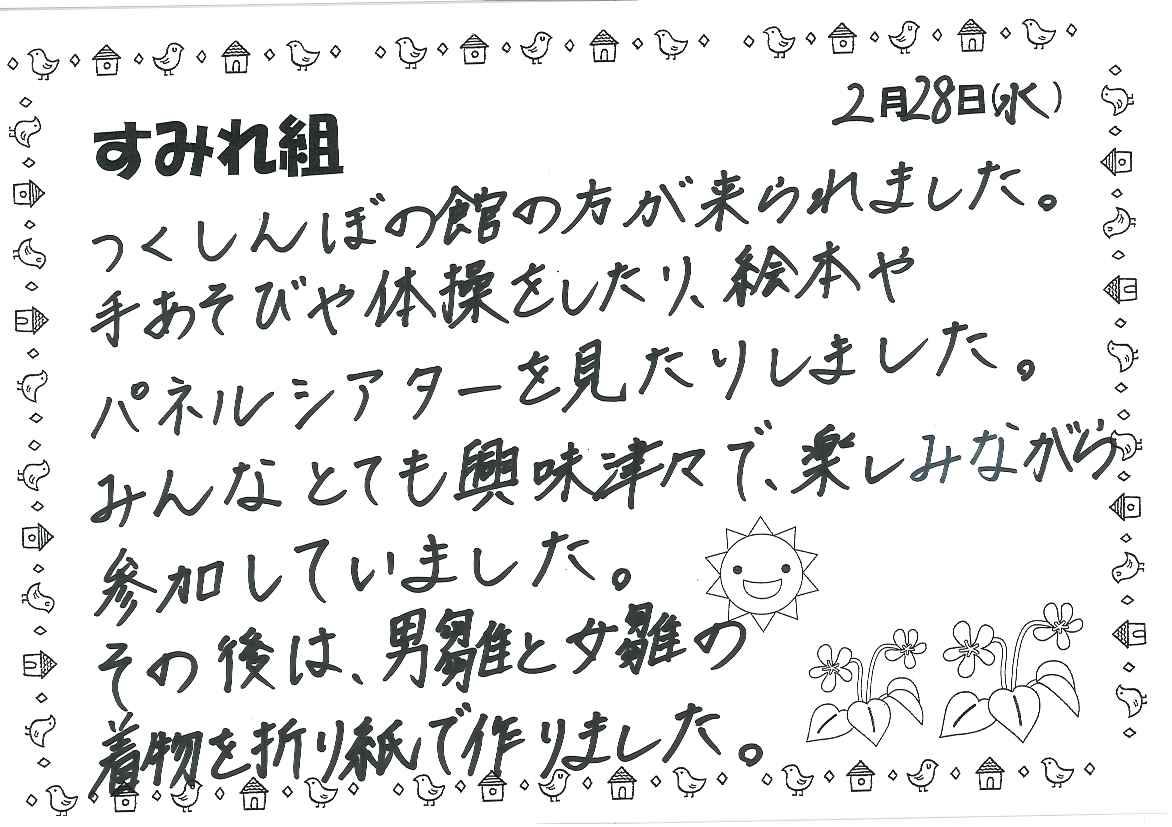 2月28日(水)
すみれ組
つくしんぼの館の方が来られました。
手あそびや体操をしたり、絵本や
パネルシアターを見たりしました。
みんなとても興味津々で、楽しみながら
参加していました。
その後は、男雛と女雛の
着物を折り紙で作りました。